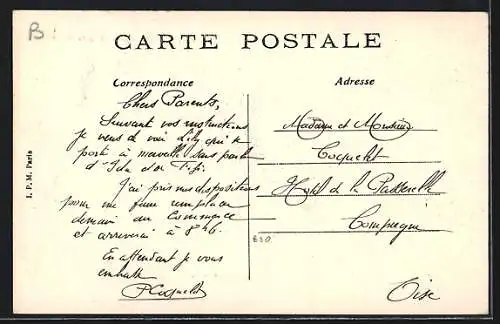 B.
CARTE POSTALE
Correspondance
Adresse
Chers Parents,
Suivant vos instructions
je viens de voir Lily qui se
porte à merveille sans parler
d'Ida et de Fifi.
J'ai pris mes dispositions
pour me faire remplacer
demain au Commerce
et arriverai à 8h46.
En attendant je vous
embrasse
P Coquelet
Madame et Monsieur
Coquelet
Hotel de la Passerelle
Compiègne
Oise
I. P. M. Paris